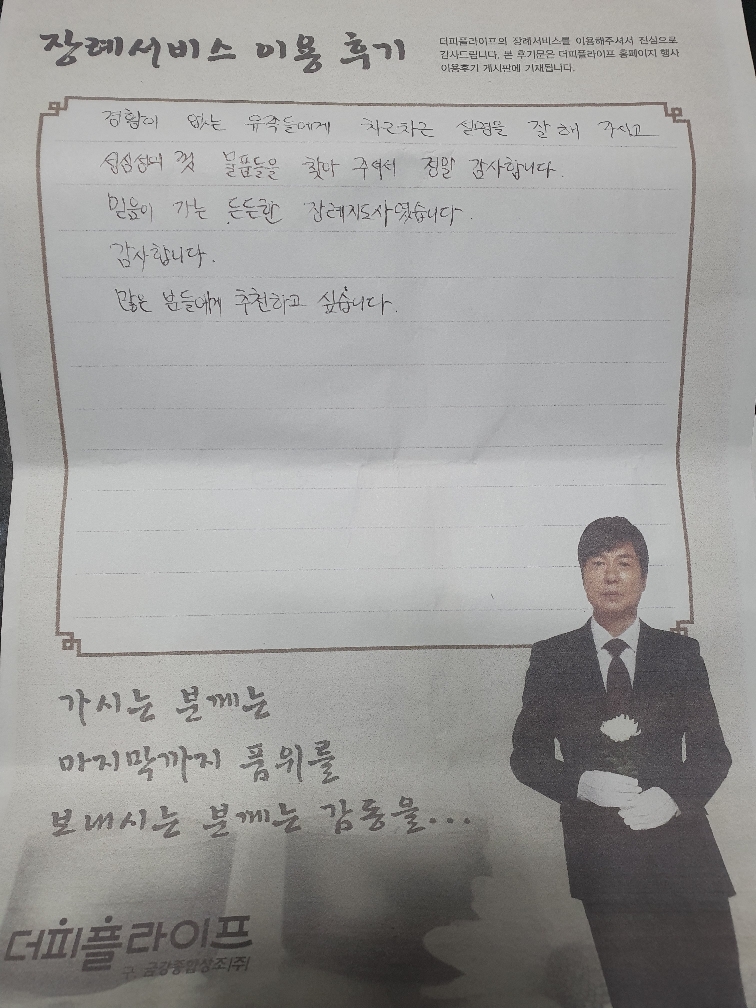 장례서비스 이용 후기
더피플라이프의 장례서비스를 이용해주셔서 진심으로
감사드립니다. 본 후기문은 더피플라이프 홈페이지 행사
이용후기 게시판에 기재됩니다.
경험이 없는 유족들에게 차근차근 설명을 잘 해 주시고
섬심성의 껏 물품들을 찾아 주셔서 정말 감사합니다.
믿음이 가는 든든한 장례지도사였습니다.
감사합니다.
많은 분들에게 추천하고 싶습니다.
가시는 분께는
마지막까지 품위를
보내시는 분께는 감동을...
더피플라이프
구 금강종합상조(주)